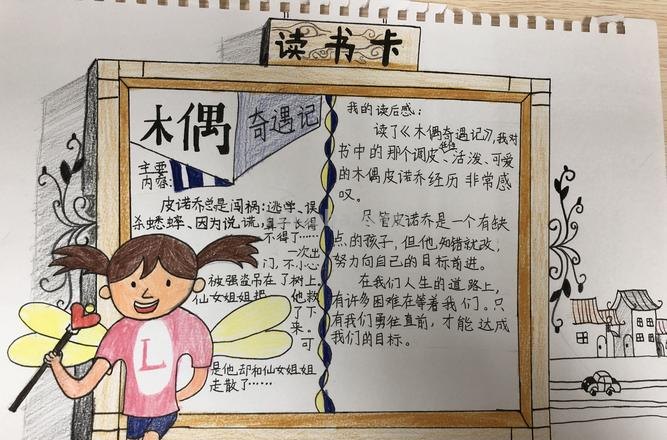 读书卡
木偶
奇遇记
主要
内容:
皮诺乔总是闯祸:逃学、误
杀蟋蟀、因为说谎,鼻子长得
不得了……
一次出
门,不小心
被强盗吊在了树上。
仙女姐姐把 他救
了下
来。
可
是他却和仙女姐姐
走散了……
L
我的读后感:
读了《木偶奇遇记》,我对
书中的那个调皮、活泼、可爱
的木偶皮诺乔经历非常感
叹。
尽管皮诺乔是一个有缺
点的孩子,但他知错就改,
努力向自己的目标前进。
在我们人生的道路上,
有许多困难在等着我们。只
有我们勇往直前,才能达成
我们的目标。